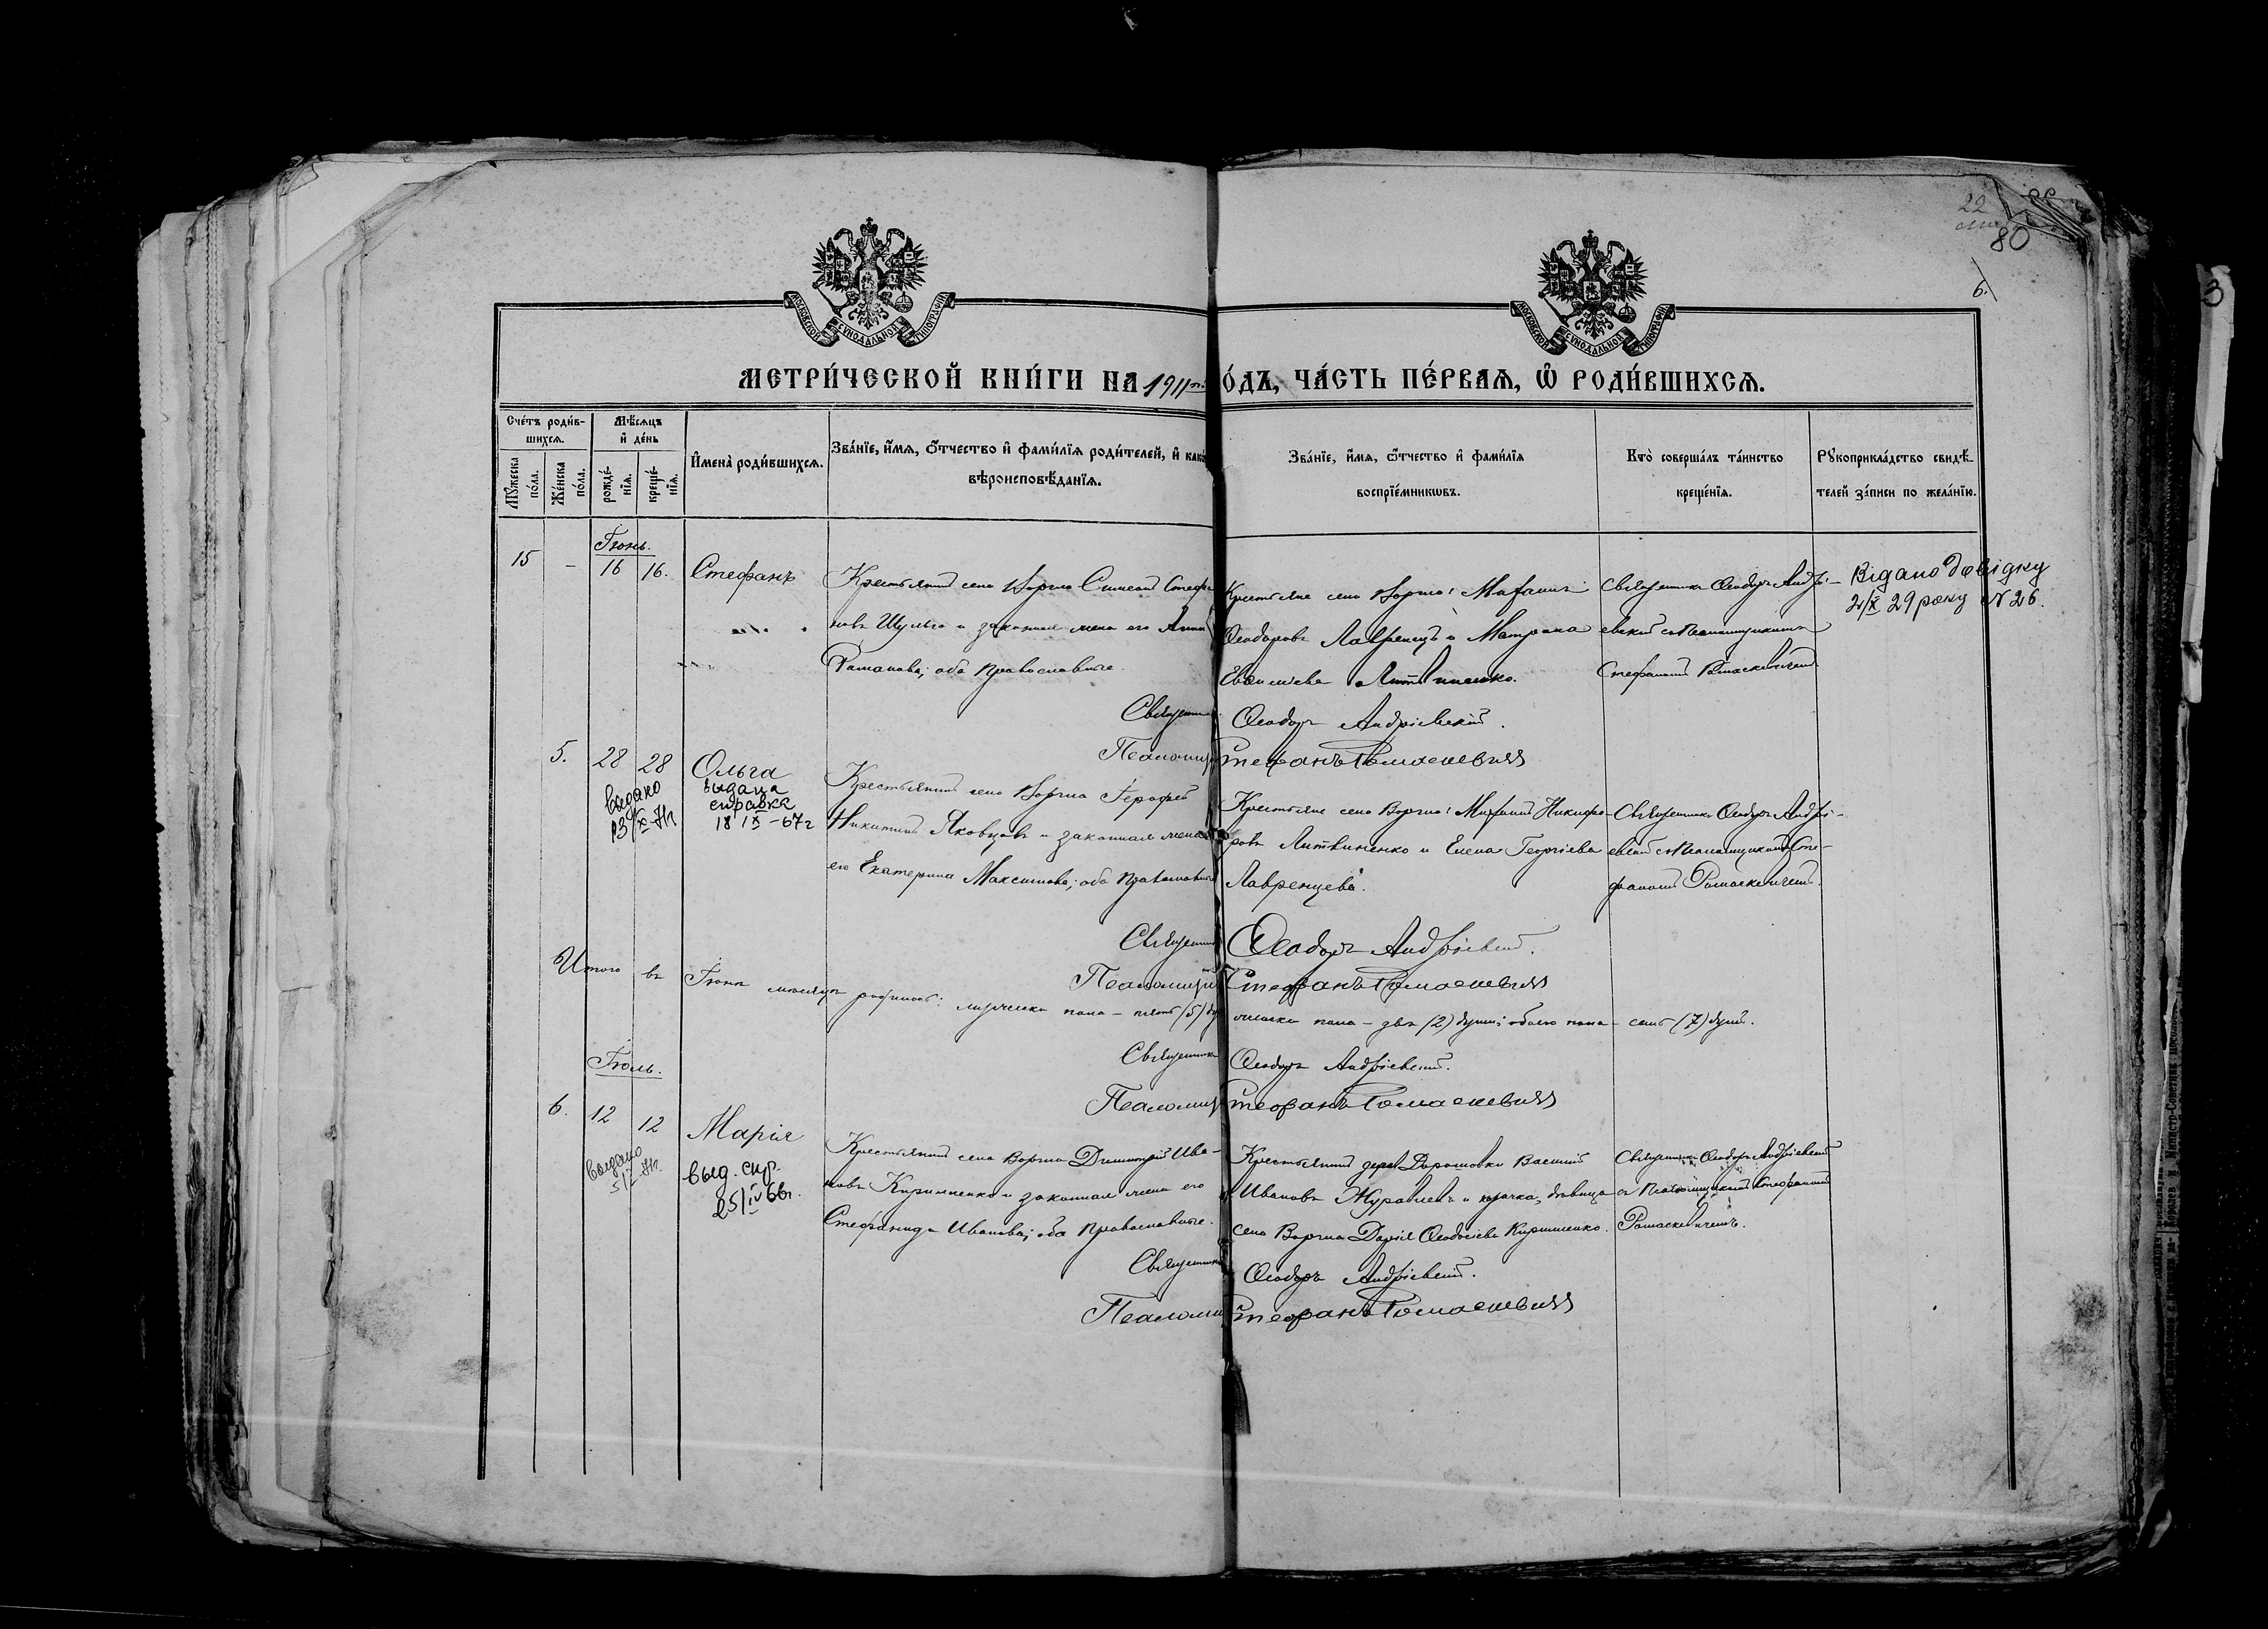 22
80
6.
3
МОСКОВСКОЙ СУНОДАЛЬНОЙ ТИПОГРАФІИ
МОСКОВСКОЙ СУНОДАЛЬНОЙ ТИПОГРАФІИ
МЕТРИ́ЧЕСКОЙ КНИ́ГИ НА 1911 О́ДЪ, ЧА́СТЬ ПЕ́РВАЯ, Ѿ РОДИ́ВШИХСЯ.
Сче́тъ роди́в-
шихся.
Мѣ́сяцъ
и҆ де́нь
Мꙋ́жеска
по́ла.
Же́нска
по́ла.
рожде́-
нїя.
креще́-
нїя.
И҆мена̀ роди́вшихся.
Зва́нїе, и҆́мя, ѻ҆́тчество и҆ фами́лїя роди́телей, и҆ како
вѣроисповѣ́данїя.
Зва́нїе, и҆́мя, ѻ҆́тчество и҆ фами́лїя
воспрїе́мникѡвъ.
Кто̀ соверша́лъ та́инство
креще́нїя.
Рꙋкоприкла́дство свидѣ́-
телей за́писи по жела́нїю.
Іюнь.
15 - 16 16. Стефанъ
Крестьянинъ села Воргла Симеонъ Стефа
новъ Шульга и законная жена его Анна
Романова; оба православные.
Крестьяне села Воргла:
Ѳеодоровъ Лавренцъ и Матрона
Литвиненко.
Священникъ Ѳеодоръ Андрі-
евскій съ псаломщикомъ
Стефаномъ Ромаскевичемъ
Видано довідку
29 року № 26.
Священни Ѳеодоръ Андріевскій.
Псаломщи Стефанъ Ромаскевичъ
5. 28 28 Ольга
Выдано
13/X-71г
выдана
справка
18 IX-67г
Крестьянинъ села Воргла Іерофей
Никитинъ Яковцовъ и законная жена
его Екатерина Максимова; оба православные
Крестьяне села Воргла: Никифо-
ровъ Литвиненко и Елена Георгіева
Лавренцева.
Священникъ Ѳеодоръ Андрі-
евскій съ псаломщикомъ Сте-
фаномъ Ромаскевичемъ.
Священникъ Ѳеодоръ Андріевскій.
Псаломщи Стефанъ Ромаскевичъ
Итого въ Іюнѣ мѣсяцѣ родилось: мужеска пола - пять (5) ду женска пола - двѣ (2) души; обоего пола - семь (7) душъ.
Священникъ Ѳеодоръ Андріевскій.
Псаломщ Стефанъ Ромаскевичъ
Іюль.
6. 12 12 Марія
Выдано
выд. спр.
25/IV 66г.
Крестьянинъ села Воргла Димитрій Ива-
новъ Кириленко и законная жена его
Стефанида Иванова; оба православные.
Крестьянинъ дер. Дорошовки Василій
Ивановъ Журавлевъ и казачка, дѣвица
села Воргла Дарія Ѳеодосіева Кириленко.
Священникъ Ѳеодоръ Андріевскій
съ псаломщикомъ Стефаномъ
Ромаскевичемъ.
Священникъ Ѳеодоръ Андріевскій.
Псаломщи Стефанъ Ромаскевичъ